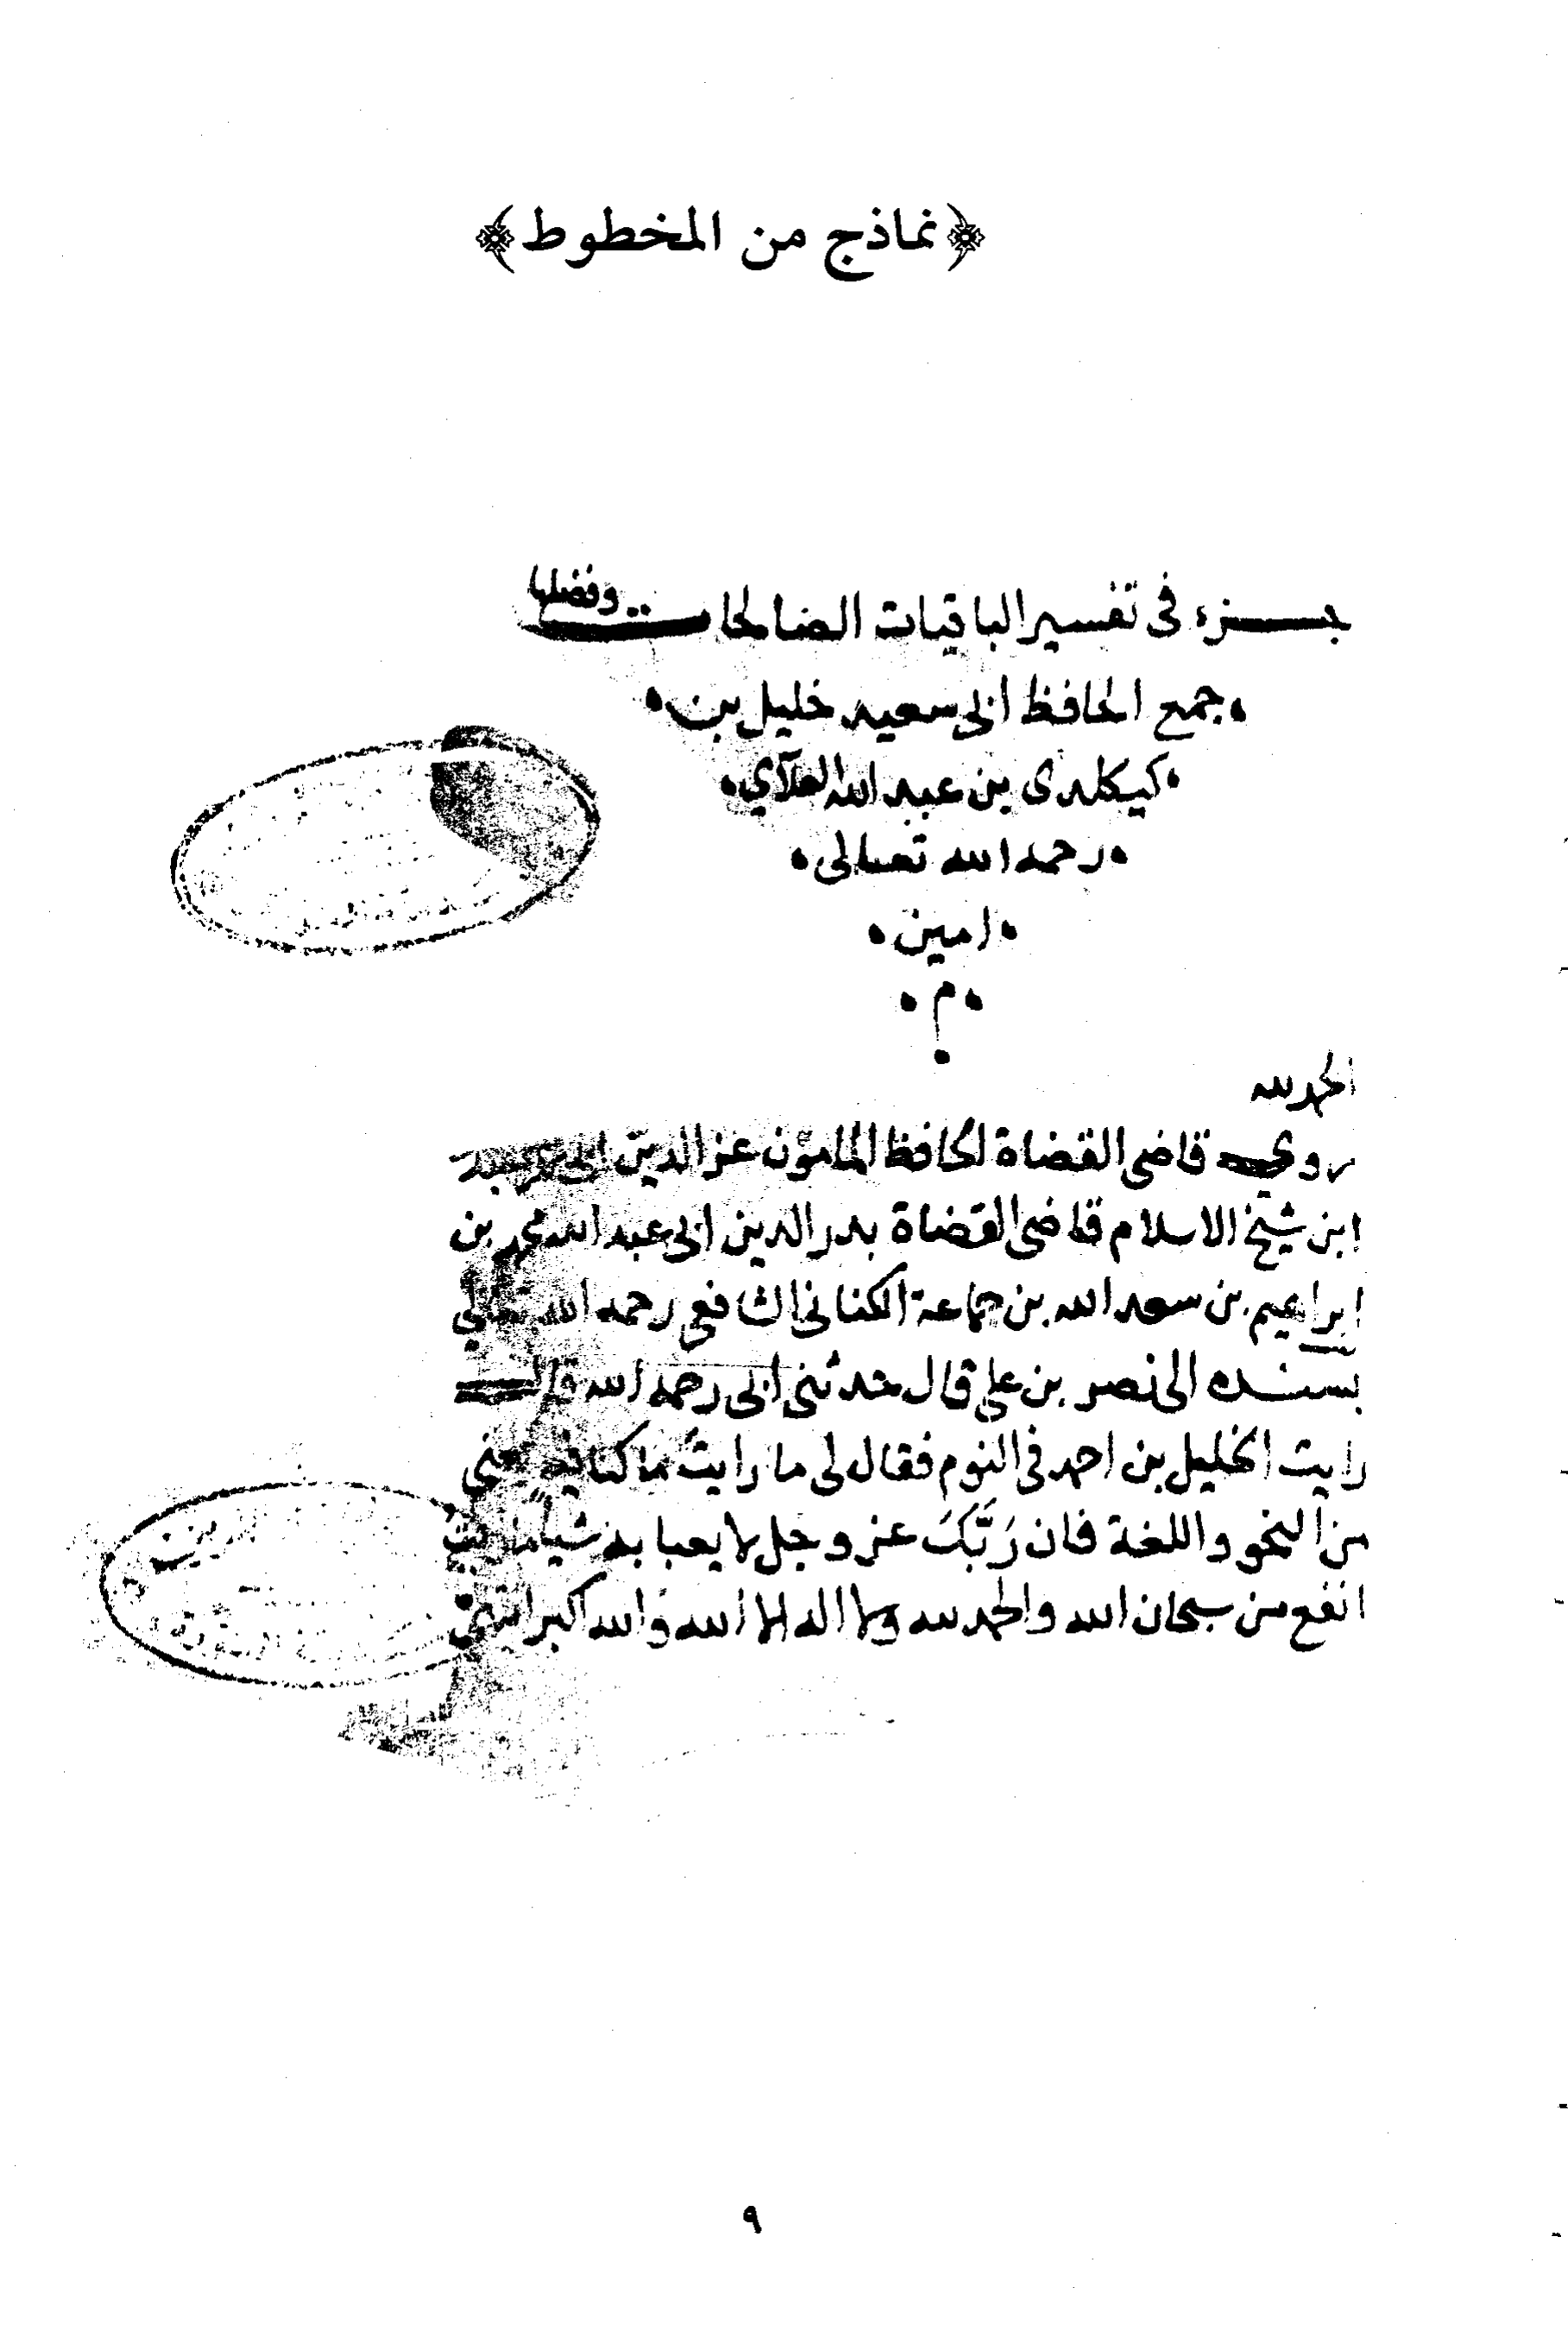 ﴿نماذج من المخطوط﴾
جزء فى تفسير الباقيات الصالحات وفضلها
جمع الحافظ ابى سعيد خليل بن
كيكلدى بن عبد الله العلآي
رحمه الله تعالى
امين
م
الحمد لله
روي قاضى القضاة الحافظ المامون عز الدين
ابن شيخ الاسلام قاضى القضاة بدر الدين ابى عبد الله محمد بن
ابراهيم بن سعد الله بن جماعة الكنانى الشافعى رحمه الله تعالي
بسنده الى نصر بن علي قال حدثنى ابى رحمه الله قال
رايت الخليل بن احمد فى النوم فقال لى ما رايتَ ما كنا فيه يعنى
من النحو واللغة فان رَبَّكَ عز وجل لا يعبا به شيا
انفع من سبحان الله والحمد لله ولا اله الا الله والله اكبر انتهى
٩